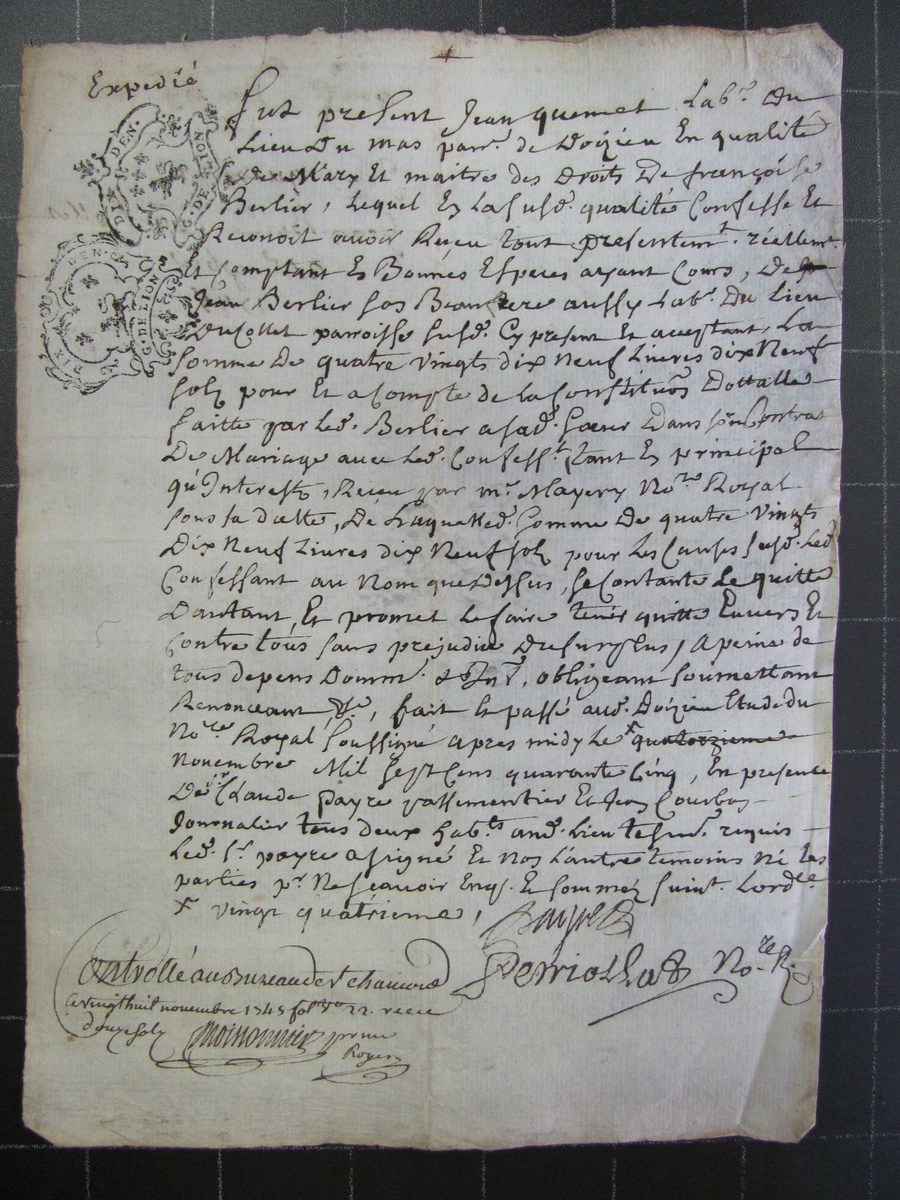 Expedié
DIX DEN.
G. DE LION
DIX DEN.
G. DE LION
fut présent Jean quemet Labr. Du
Lieu Du mas parr. de Doizieu En qualité
De Mary Et maitre des Droits De françoise
Berlier, Lequel En La susd. qualité Confesse Et
Reconoit avoir Reçeu tout presentemt. réellemt.
Et Comptant En Bonnes Especes ayant Cours, De
Jean Berlier son Beaufrere aussy Labr. Du Lieu
Ducollet parroisse susd. Cy présent Et acceptant, La
somme De quatre vingts dix Neuf Livres dix Neuf
solz pour Et acompte de La Constitution Dottalle
faitte par Led. Berlier asad. sœur Dans son Contrat
De Mariage avec Led. Confesst. tant En principal
qu'Interest, Receu par mr. Mayery Nore. Royal
sous sa datte, De Laquelled. somme De quatre vingts
Dix Neuf Livres dix Neuf solz pour Les Causes susd. Led.
Confessant au Nom que Dessus, se Contante Le quitte
Dautant, Et promet Le faire tenir quitte Envers Et
Contre tous sans préjudice Du surplus, A peine de
tous depens Domm. & Int., obligeant soumettant
Renonceant &c., fait Et passé aud. Doizieu Etude du
Nore. Royal soussigné apres midy Le x quatorzieme
novembre Mil sept Cens quarante Cinq, En présence
De sr. Claude Payre passementier Et Jean Courbon
Journalier tous deux habts. aud. Lieu tesm. requis
Led. sr. payre a signé Et Nos Lautre temoins Ni Les
parties pr. Ne sçavoir Enq. Et sommés suivt. Lordce.
x vingt quatrieme,
Payre
Perriolhat No.re R.
Controllé au Bureau de St chaumond
Ce vingthuit novembre 1745 fol. vo 22. receu
douze solz